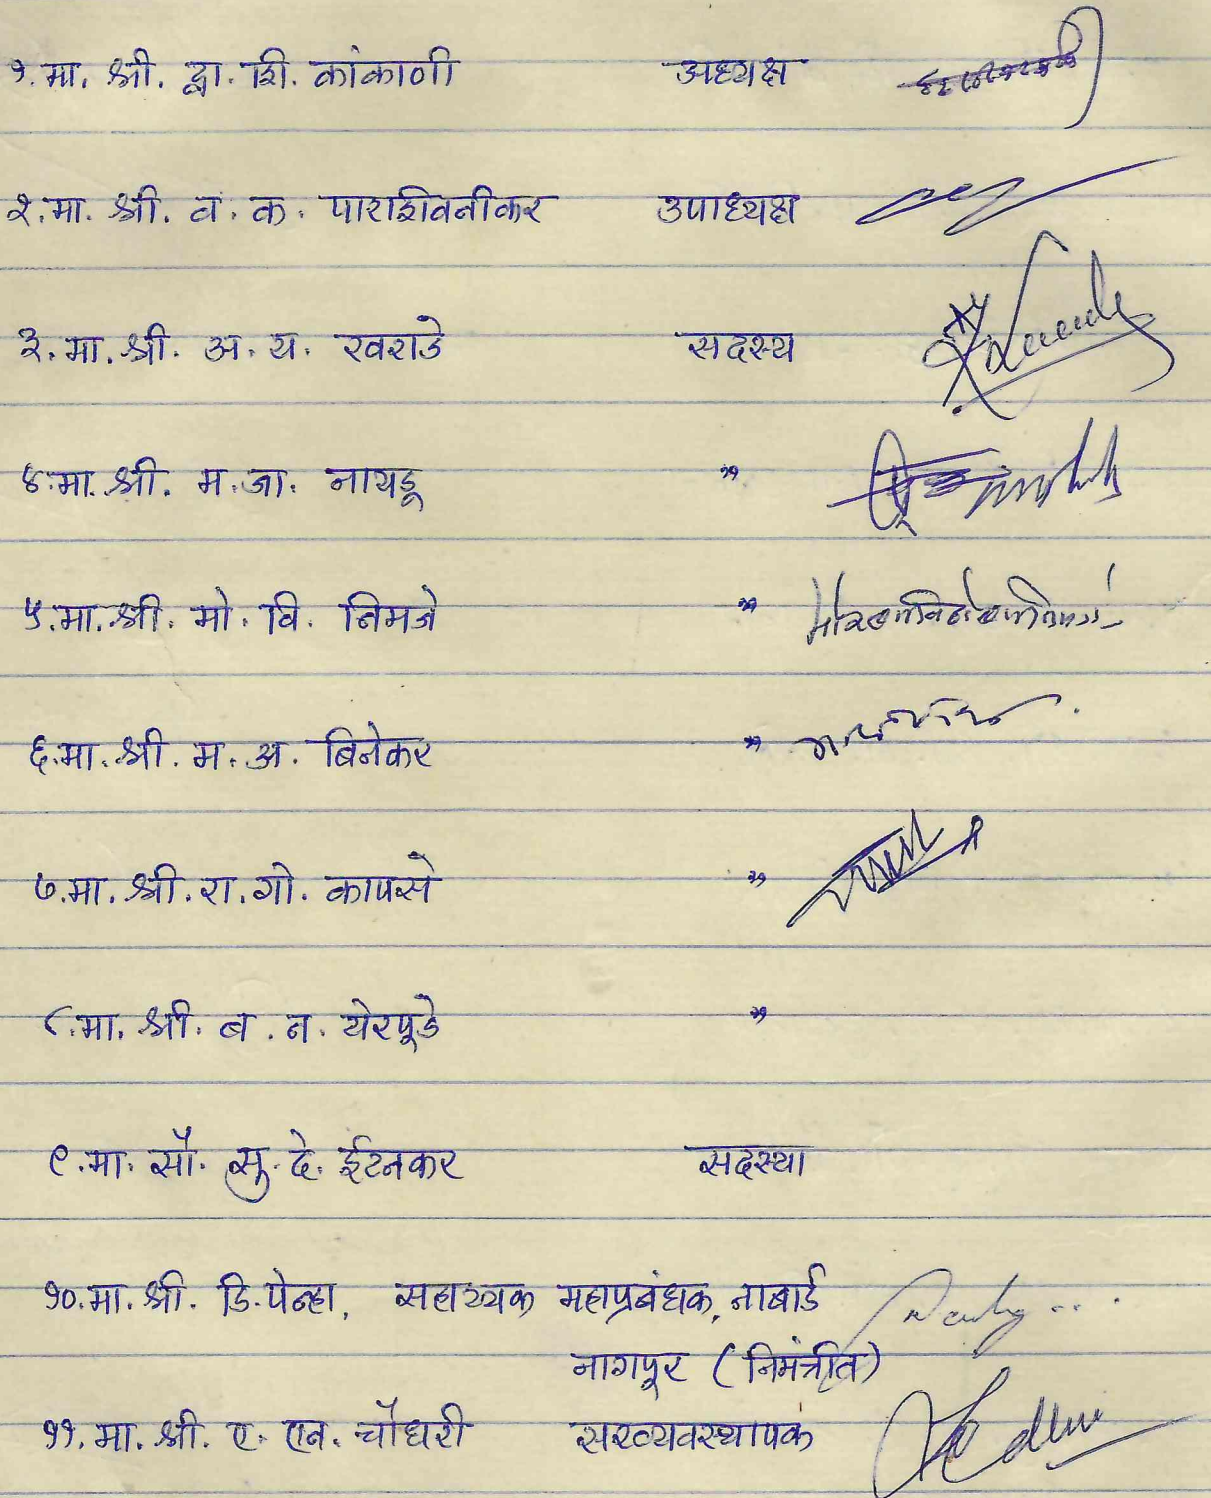 १. मा. श्री. द्वा. शि. कांकाणी अध्यक्ष
२. मा. श्री. व. क. पाराशीवनीकर उपाध्यक्ष
३. मा. श्री. अ. य. खराडे सदस्य
४. मा. श्री. म. जा. नायडू "
५. मा. श्री. मो. वि. निमजे "
६. मा. श्री. म. अ. बिनेकर "
७. मा. श्री. रा. गो. कापसे "
८. मा. श्री. ब. न. येरपूडे "
९. मा. सौ. सु. दे. ईटनकर सदस्या
१०. मा. श्री. डि. पेन्हा, सहाय्यक महाप्रबंधक, नाबार्ड
नागपूर (निमंत्रीत)
११. मा. श्री. ए. एन. चौधरी सरव्यवस्थापक